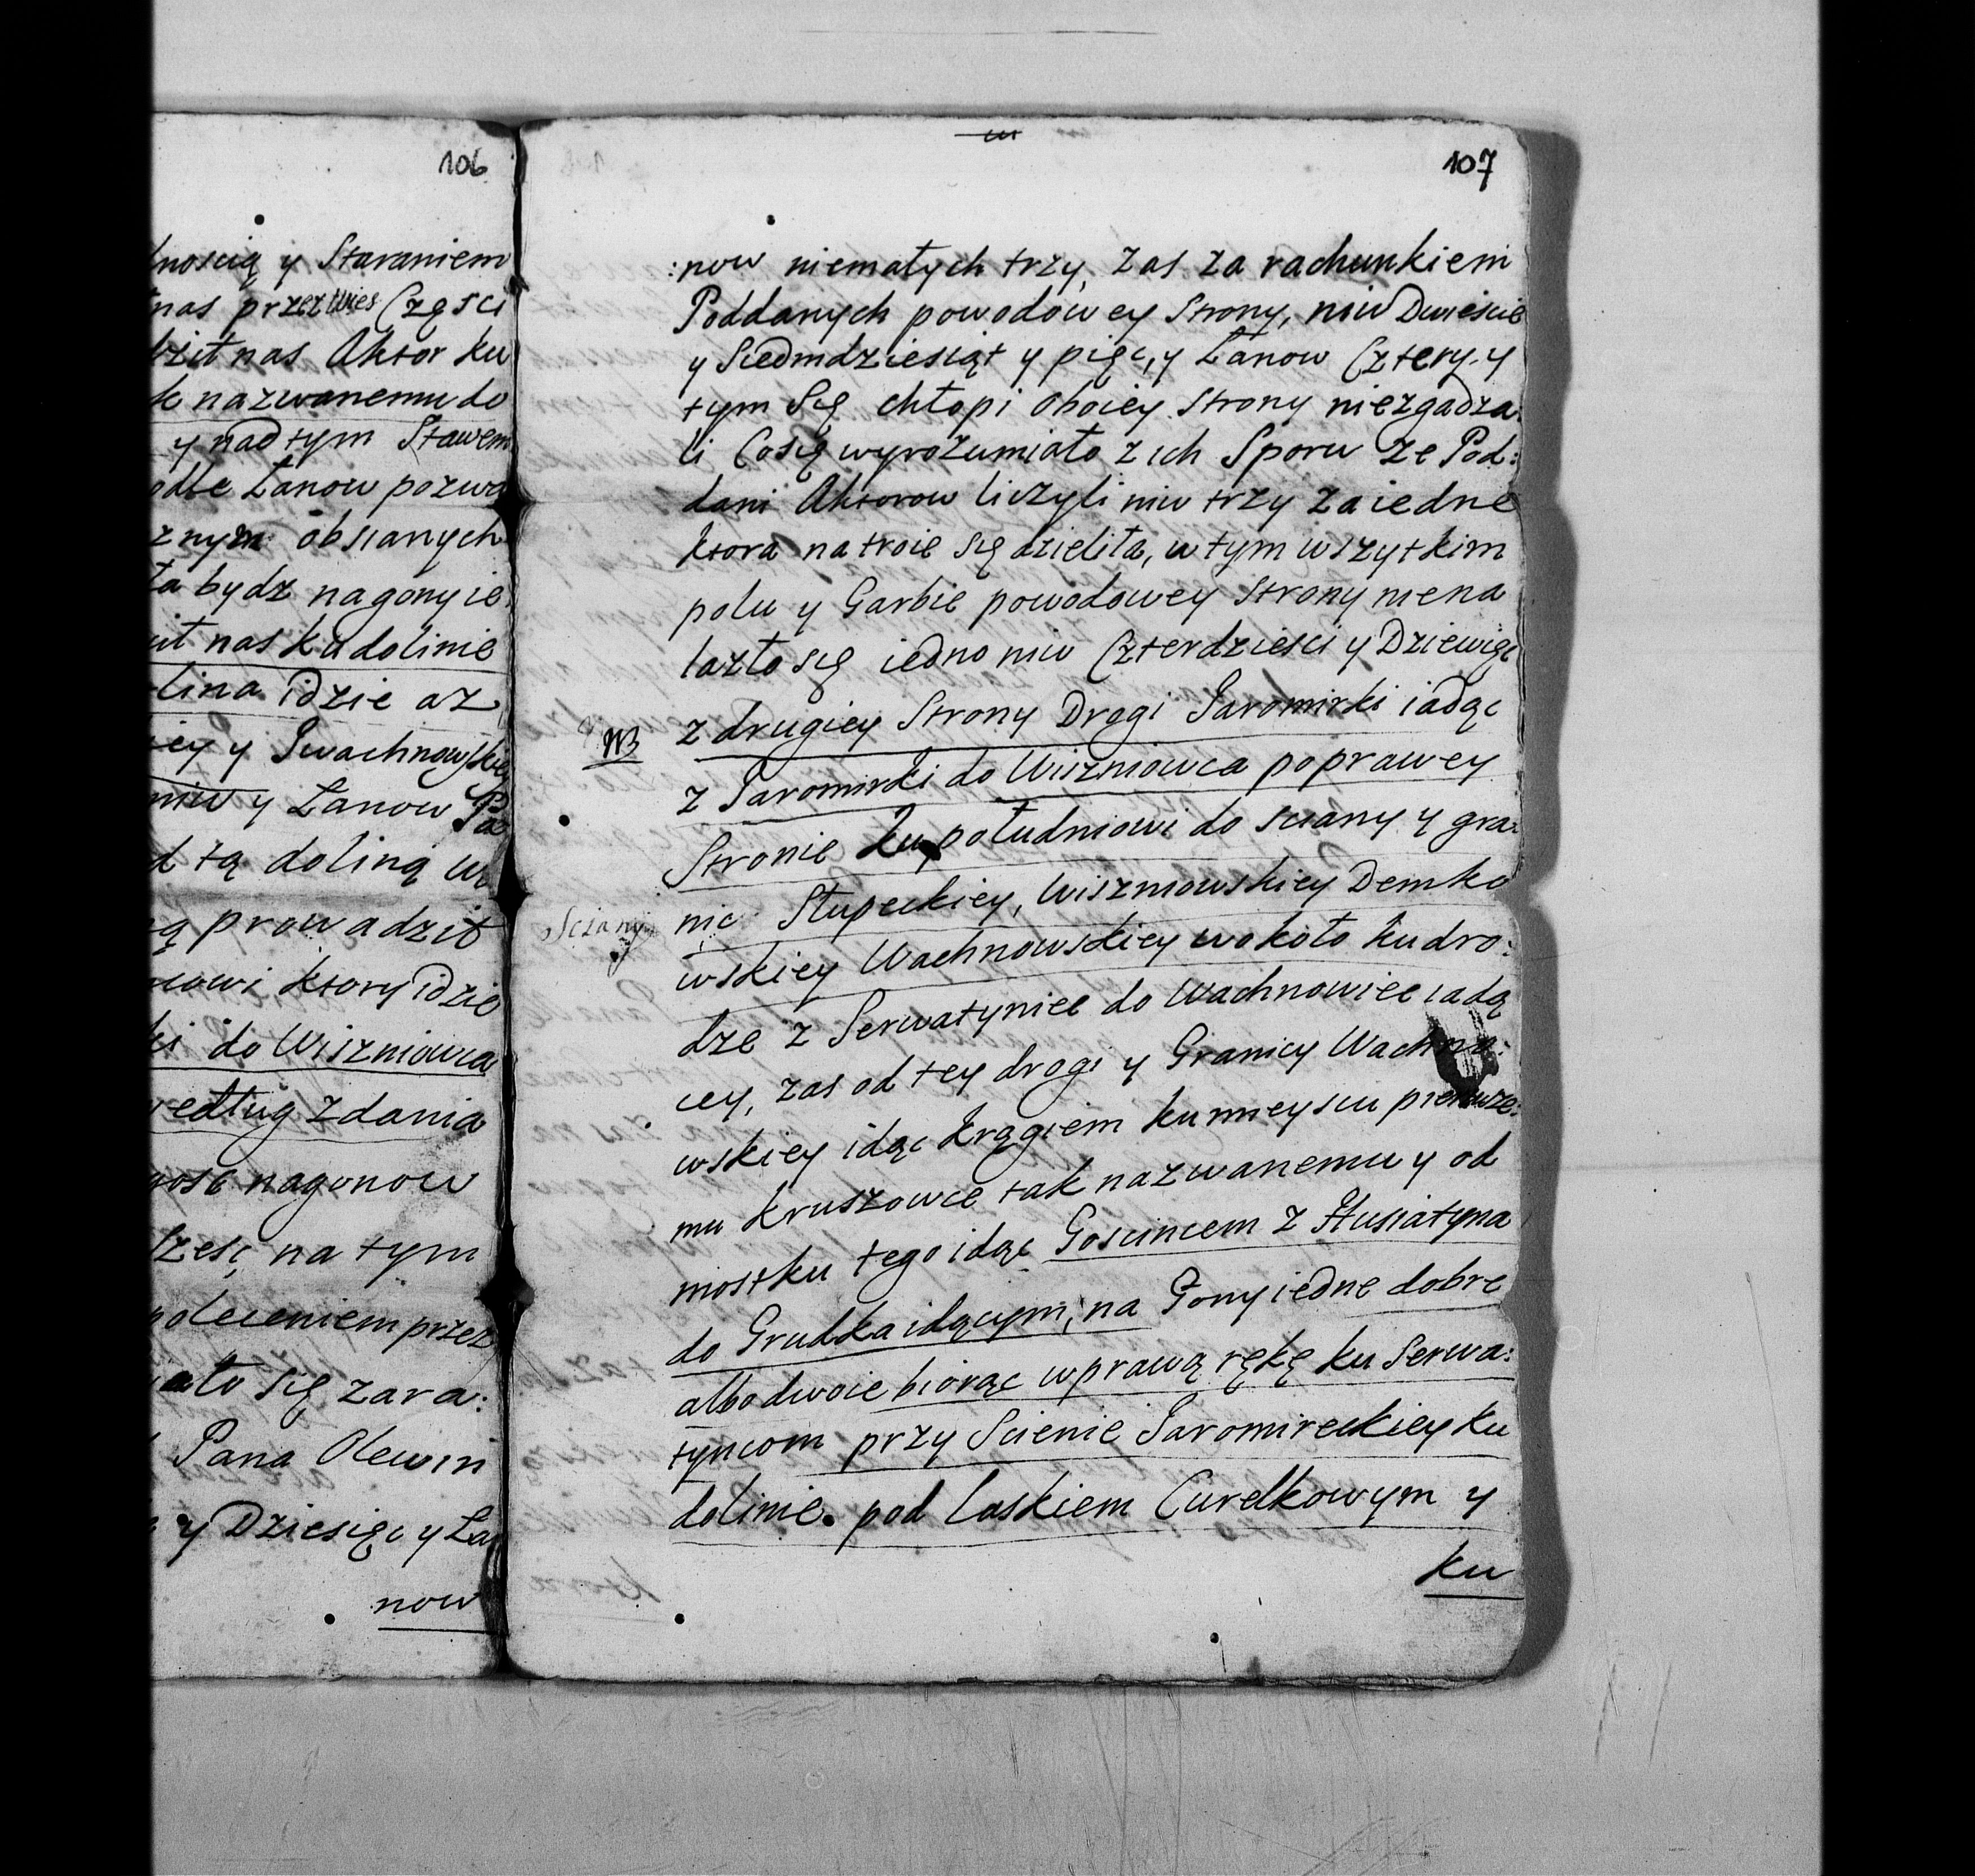 106
nością y Staraniem
nas przez Wies Części
dził nas Aktor ku
k nazwanemu do
y nad tym Stawem
odle Łanow pozwa
znym obsianych
ła bydz nagony ie
ił nas ku dolinie
lina idzie aż
iey y Iwachnowskiey
niw y Łanow Pa
d tą doliną w
ą prowadził
mowi ktory idzie
ki do Wiszniowca
według zdania
gośc nagonow
dześc, na tym
poleceniem przez
iało się zara:
Pana Olewin
y Dziesięc y Ła
now
107
:now niemałych trzy, zas za rachunkiem
Poddanych powodowey Strony, niw Dwieście
y Siedmdziesiąt y pięc, y Łanow Cztery. y
tym Się chłopi oboiey Strony niezgadza:
li Cosię wyrozumiało z ich Sporu ze Pod:
dani Aktorow liczyli niw trzy za iedne
ktora na troie się dzieliła, w tym wszytkim
polu y Garbie powodowey Strony niena
lazło się iedno niw Czterdzieści y Dziewięc
NB z drugiey Strony Drogi Jaromirki iadąc
z Jaromirki do Wiszniowca po prawey
Stronie ku południowi do sciany y gra:
Sciany
nic Słupeckiey, Wiszniowskiey Demko
wskiey Wachnowskiey wokoło ku dro:
dze z Serwatyniec do Wachnowiec iadą
cey, zas od tey drogi y Granicy Wachno:
wskiey idąc krągiem ku mieyscu pierwsze:
mu Kruszowce tak nazwanemu y od
mostku tego idąc Goscincem z Husiatyna
do Grudka idącym, na Gony iedne dobre
albo dwoie biorąc w prawą rękę ku Serwa:
tyncom przy Scienie Jaromireckiey ku
dolinie pod laskiem Curelkowym y
ku